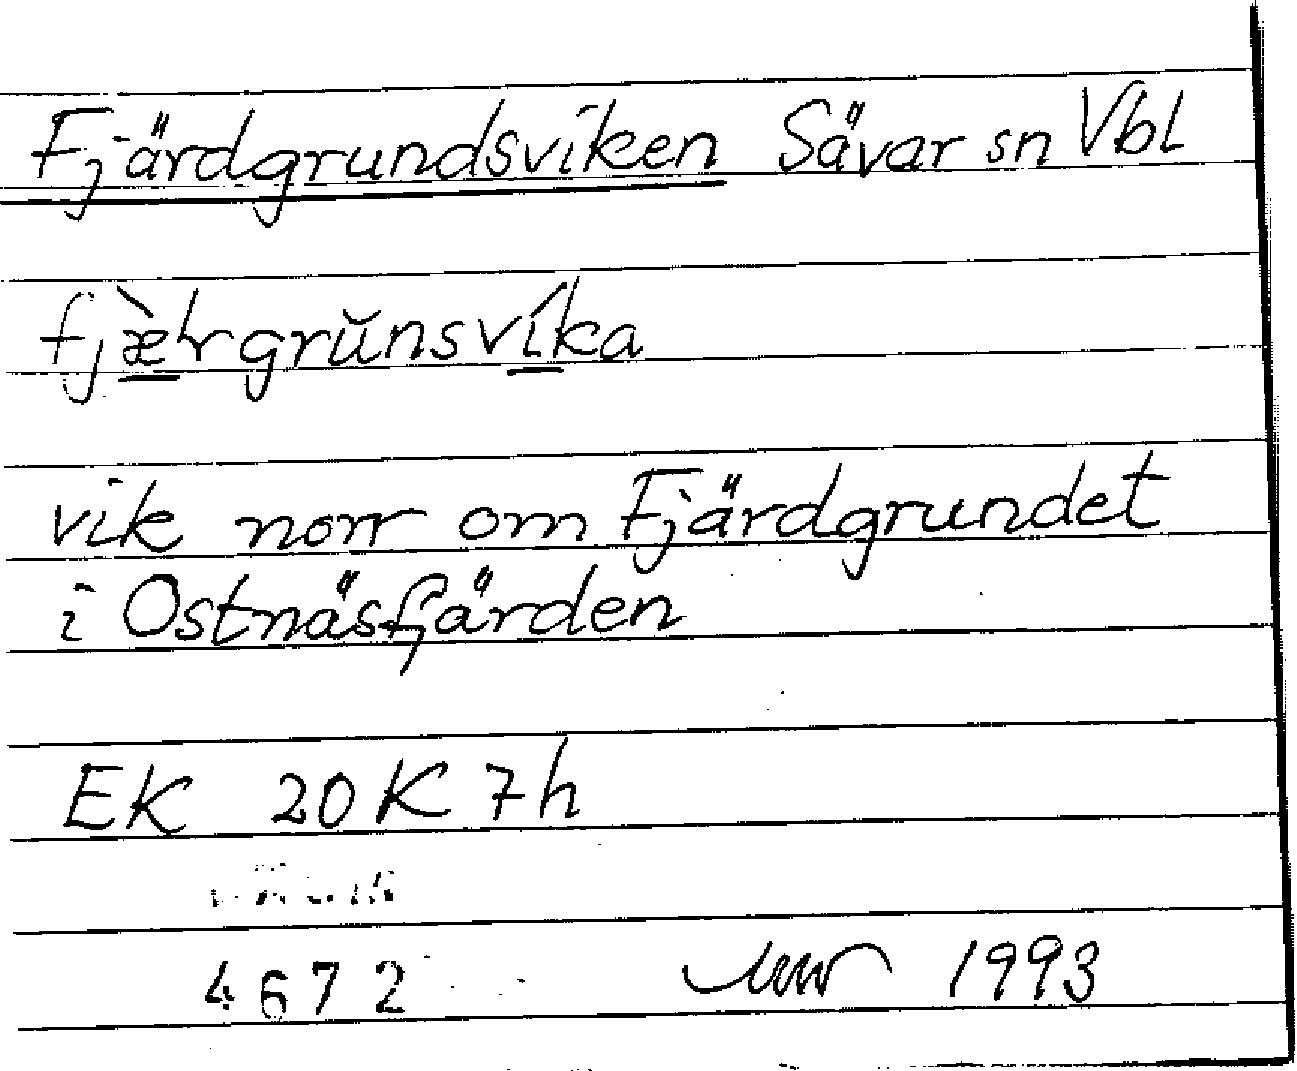 Fjärdgrundsviken Sävar sn Vbl
vik norr om Fjärdgrundet
i Ostnäsfjärden
EK 20K 7h
4672 1993